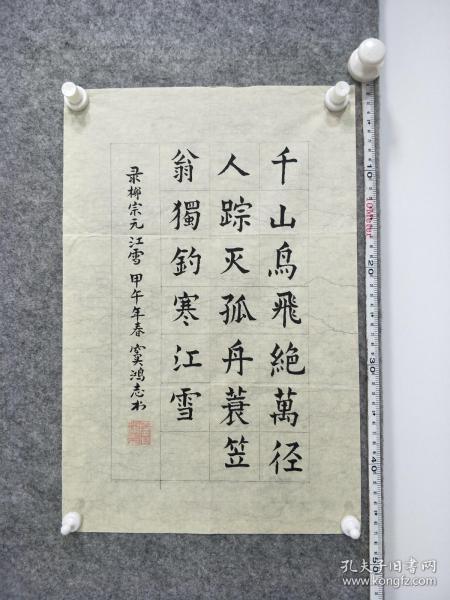 千山鸟飛絶萬径
人踪灭孤舟蓑笠
翁獨釣寒江雪
录柳宗元江雪甲午年春窦鸿志书
10Meter
10
20
30
40
50
孔夫子旧书网
www.kongfz.com